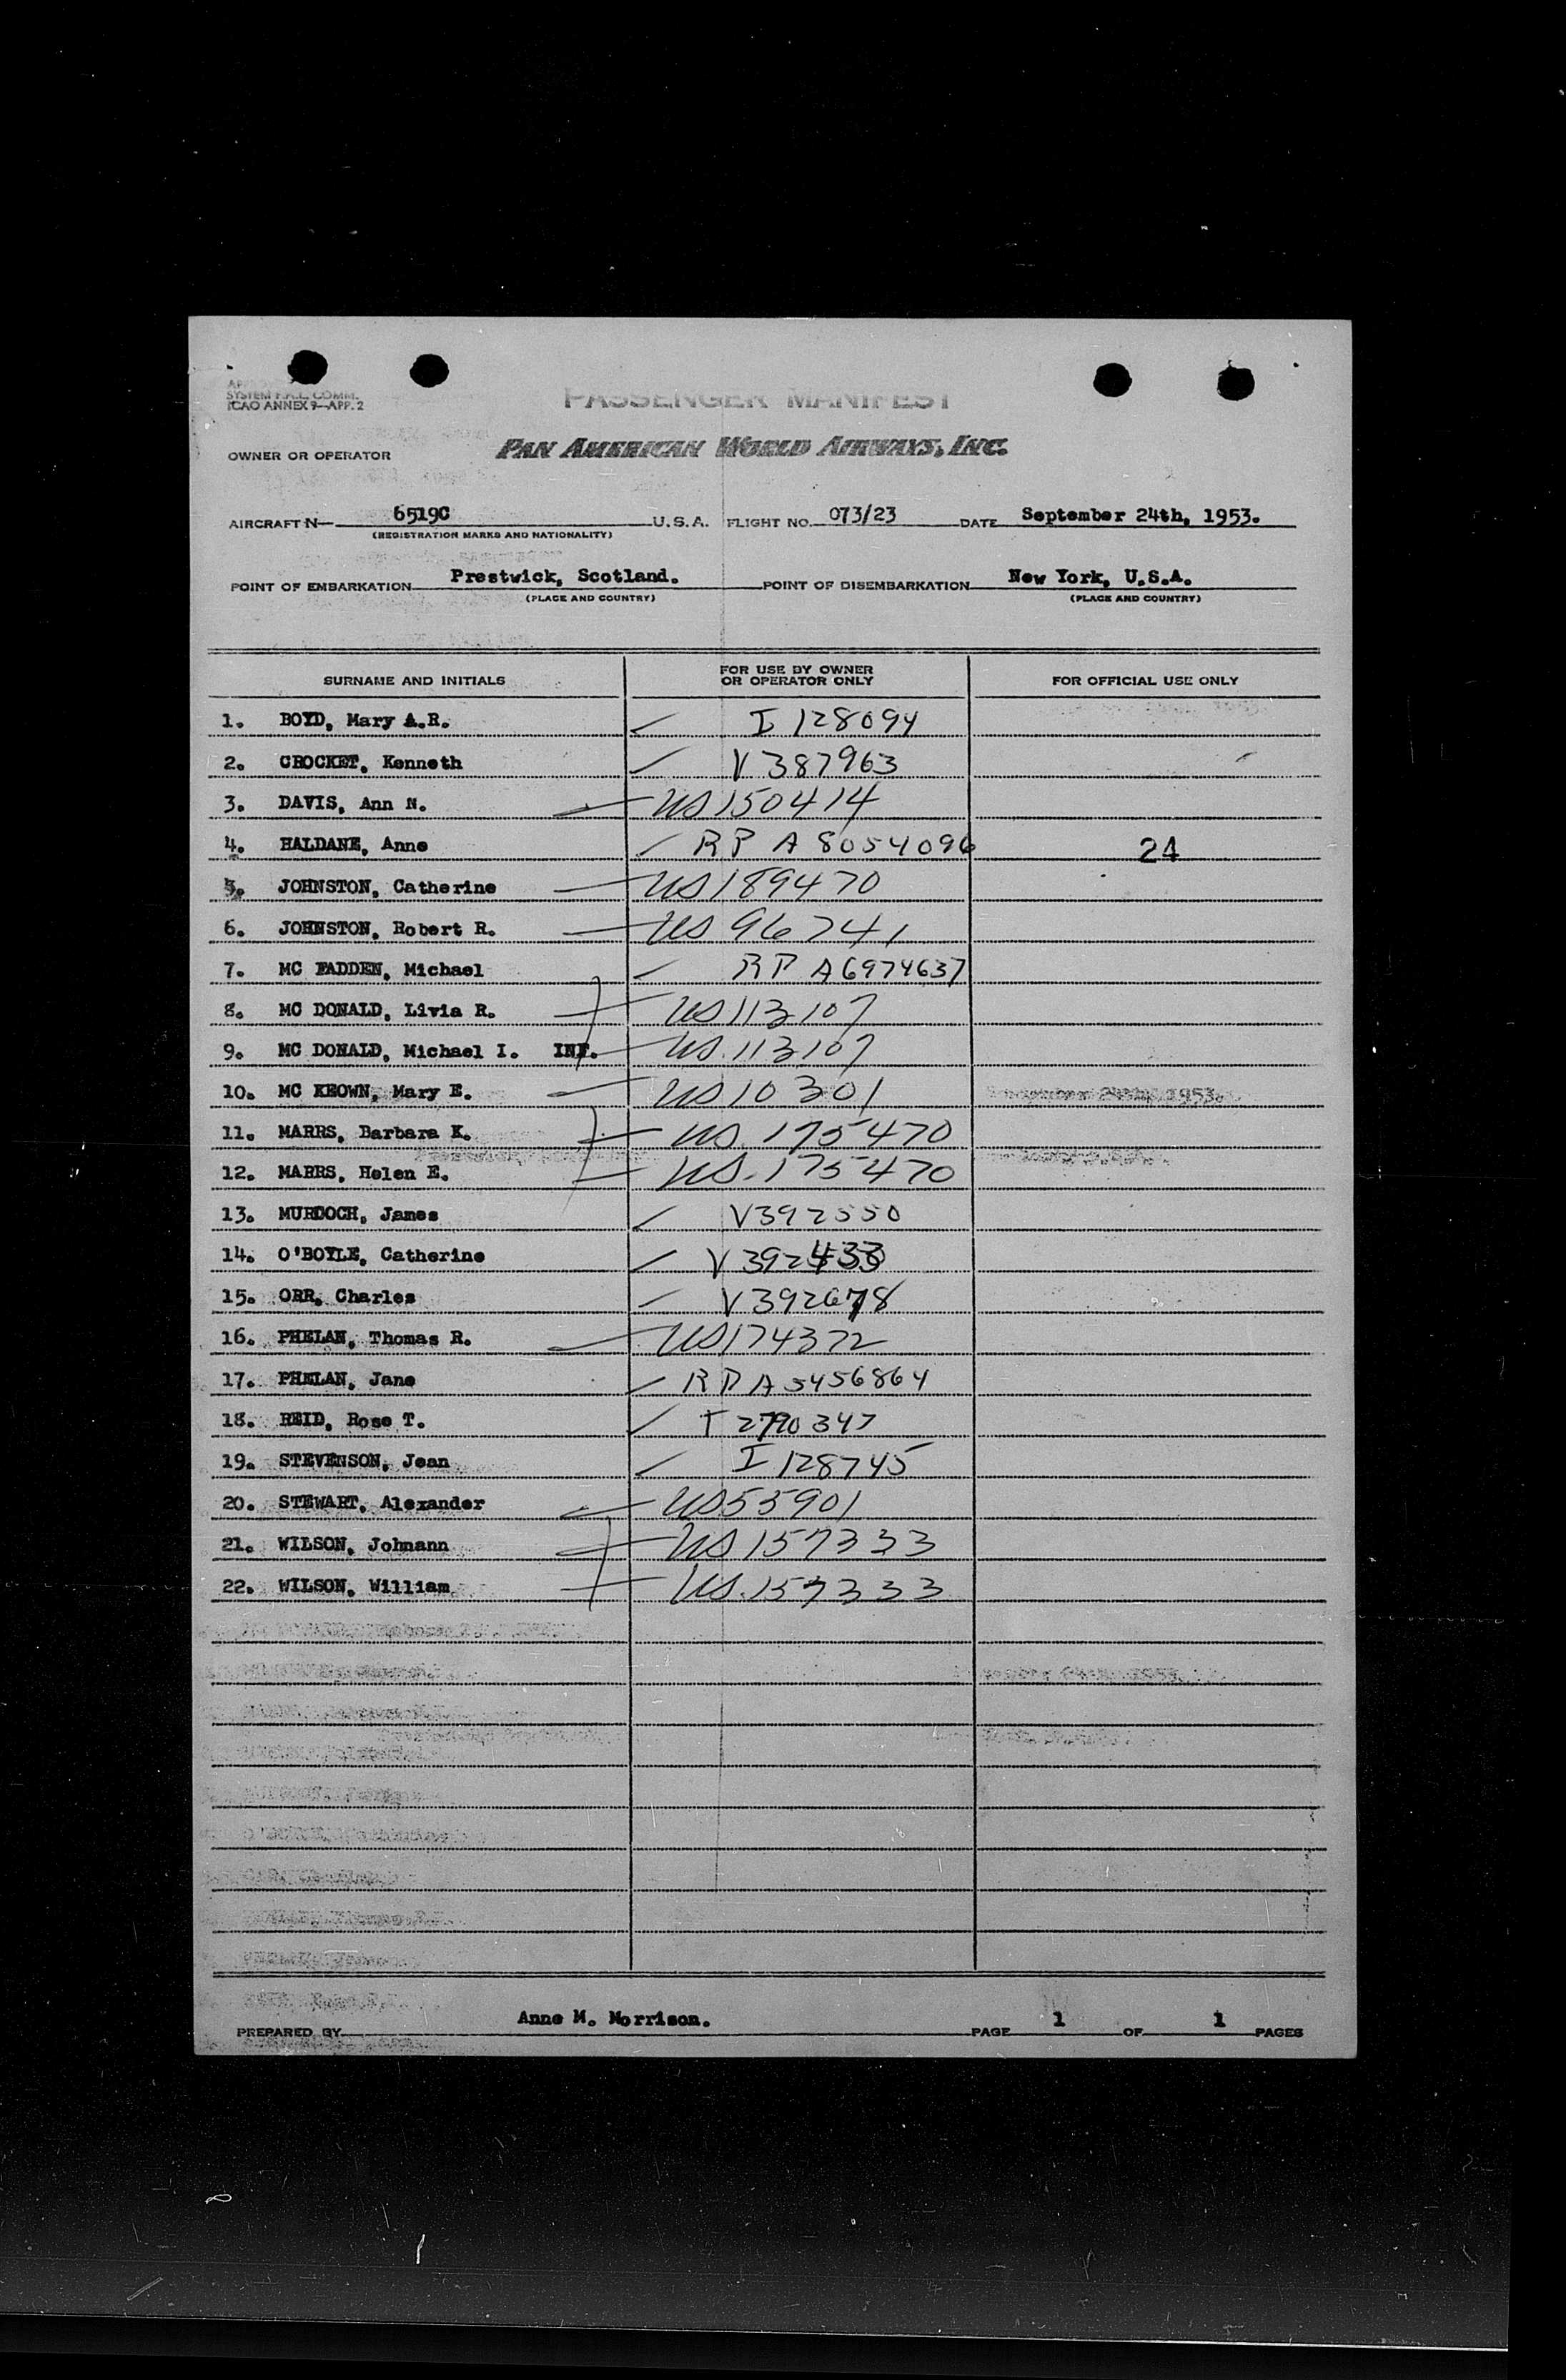 SYSTEM F.A.L. COMM.
ICAO ANNEX 9—APP. 2
PASSENGER MANIFEST
OWNER OR OPERATOR PAN AMERICAN WORLD AIRWAYS, INC.
AIRCRAFT N— 6519C U.S.A. FLIGHT NO. 073/23 DATE September 24th, 1953.
(REGISTRATION MARKS AND NATIONALITY)
POINT OF EMBARKATION Prestwick, Scotland. POINT OF DISEMBARKATION New York, U.S.A.
(PLACE AND COUNTRY) (PLACE AND COUNTRY)
SURNAME AND INITIALS FOR USE BY OWNER OR OPERATOR ONLY FOR OFFICIAL USE ONLY
1. BOYD, Mary A.R. I 128094
2. CROCKET, Kenneth V 387963
3. DAVIS, Ann N. US 150414
4. HALDANE, Anne RP A 8054096 24
5. JOHNSTON, Catherine US 189470
6. JOHNSTON, Robert R. US 96741
7. MC FADDEN, Michael RP A6974637
8. MC DONALD, Livia R. US 113107
9. MC DONALD, Michael I. INF. US. 113107
10. MC KEOWN, Mary E. US 10301
11. MARRS, Barbara K. US. 175470
12. MARRS, Helen E. US. 175470
13. MURDOCH, James V392550
14. O'BOYLE, Catherine V 392433
15. ORR, Charles V392678
16. PHELAN, Thomas R. US 174372
17. PHELAN, Jane RP A 5456864
18. REID, Rose T. T 2790347
19. STEVENSON, Jean I 128745
20. STEWART, Alexander US 55901
21. WILSON, Johnann US 157333
22. WILSON, William US. 157333
PREPARED BY Anne M. Morrison. PAGE 1 OF 1 PAGES